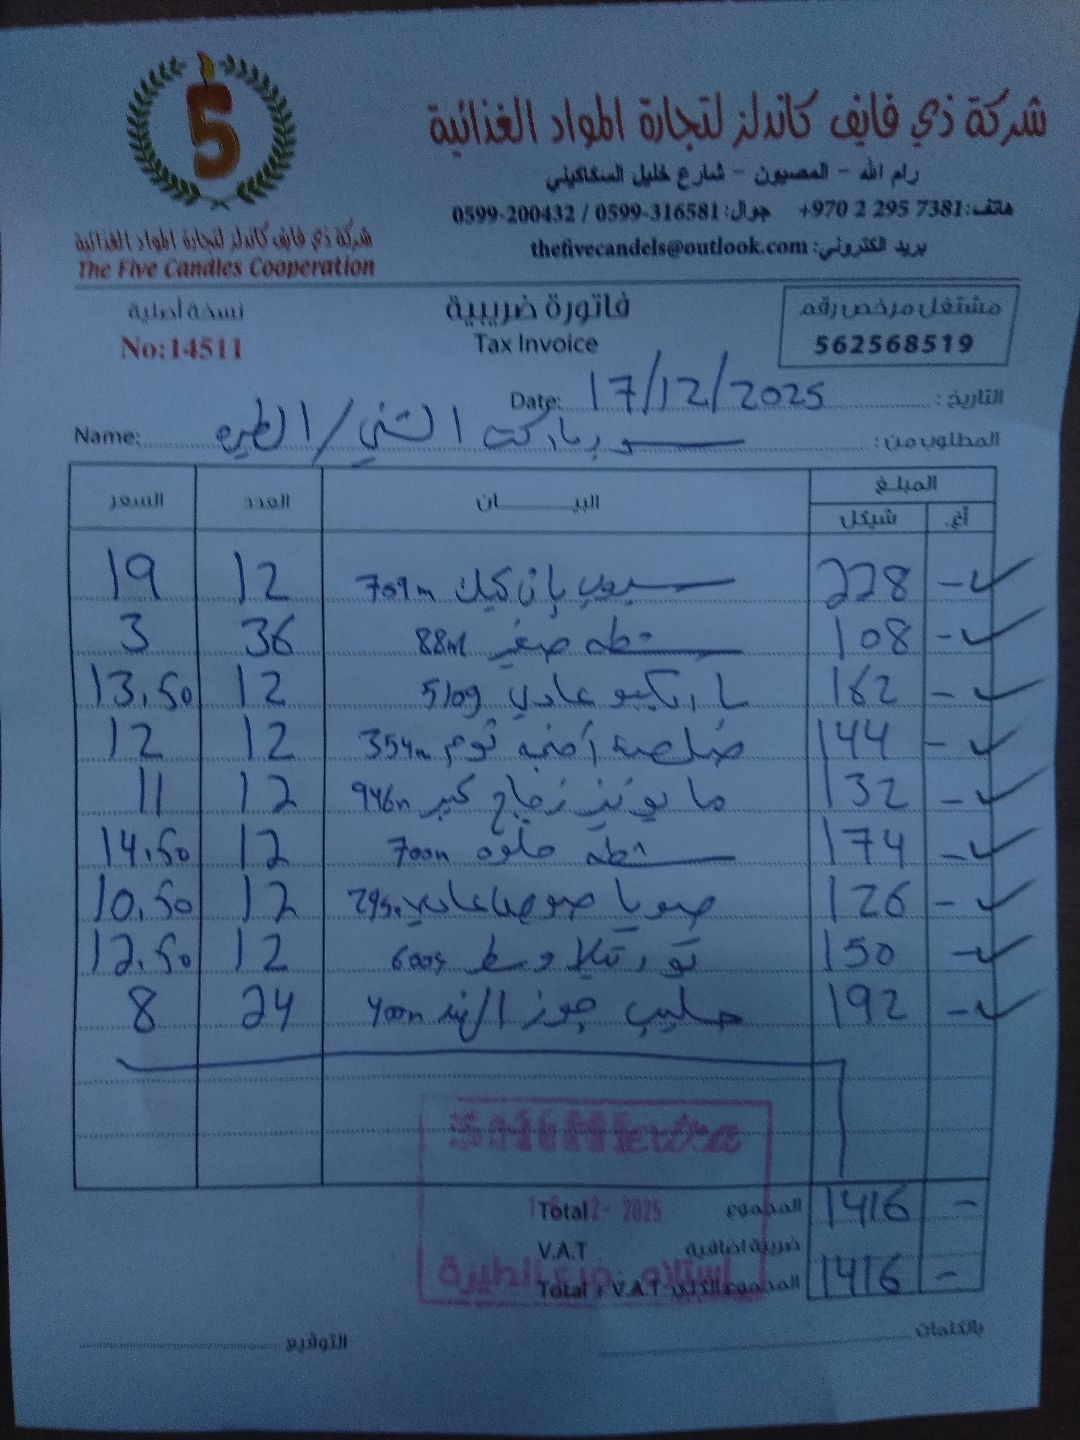 شركة ذي فايف كاندلز لتجارة المواد الغذائية
رام الله - المصيون - شارع خليل السكاكيني
هاتف: +970 2 295 7381 جوال: 0599-316581 / 0599-200432
بريد الكتروني: thefivecandels@outlook.com
5
شركة ذي فايف كاندلز لتجارة المواد الغذائية
The Five Candles Cooperation
مشتغل مرخص رقم
562568519
فاتورة ضريبية
Tax Invoice
نسخة أصلية
No:14511
التاريخ: 17/12/2025 Date:
المطلوب من: سوبرماركت الشني/الطيرة Name:
المبلغ البيـــــان العدد السعر
أغ. شيكل
- 228 بان كيك 709m 12 19
- 108 صغير 88ml 36 3
- 162 باربكيو عادي 510g 12 13.50
- 144 ثوم 354m 12 12
- 132 مايونيز زجاج كبير 946m 12 11
- 174 حلوه 700m 12 14.50
- 126 صويا صوص عادي 295m 12 10.50
- 150 تورتيلا وسط 600g 12 12.50
- 192 حليب جوز الهند 400m 24 8
2025
المجموع Total 1416 -
ضريبة اضافية V.A.T
المجموع الكلي Total + V.A.T 1416 -
استلام فرع الطيرة
بالكلمات
التوقيع